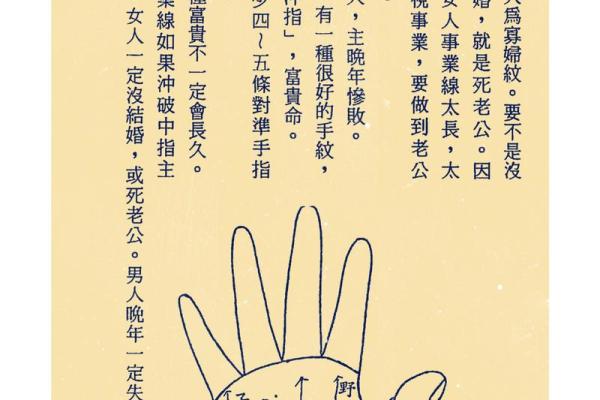 人爲寡婦紋。要不是沒
婚，就是死老公。因
女人事業線太長，太
視事業，要做到老公
。
人，主晚年慘敗。
有一種很好的手紋，
沖指」，富貴命。
少四～五條對準手指
種富貴不一定會長久。
業線如果沖破中指主
女人一定沒結婚，或死老公。男人晚年一定失
野